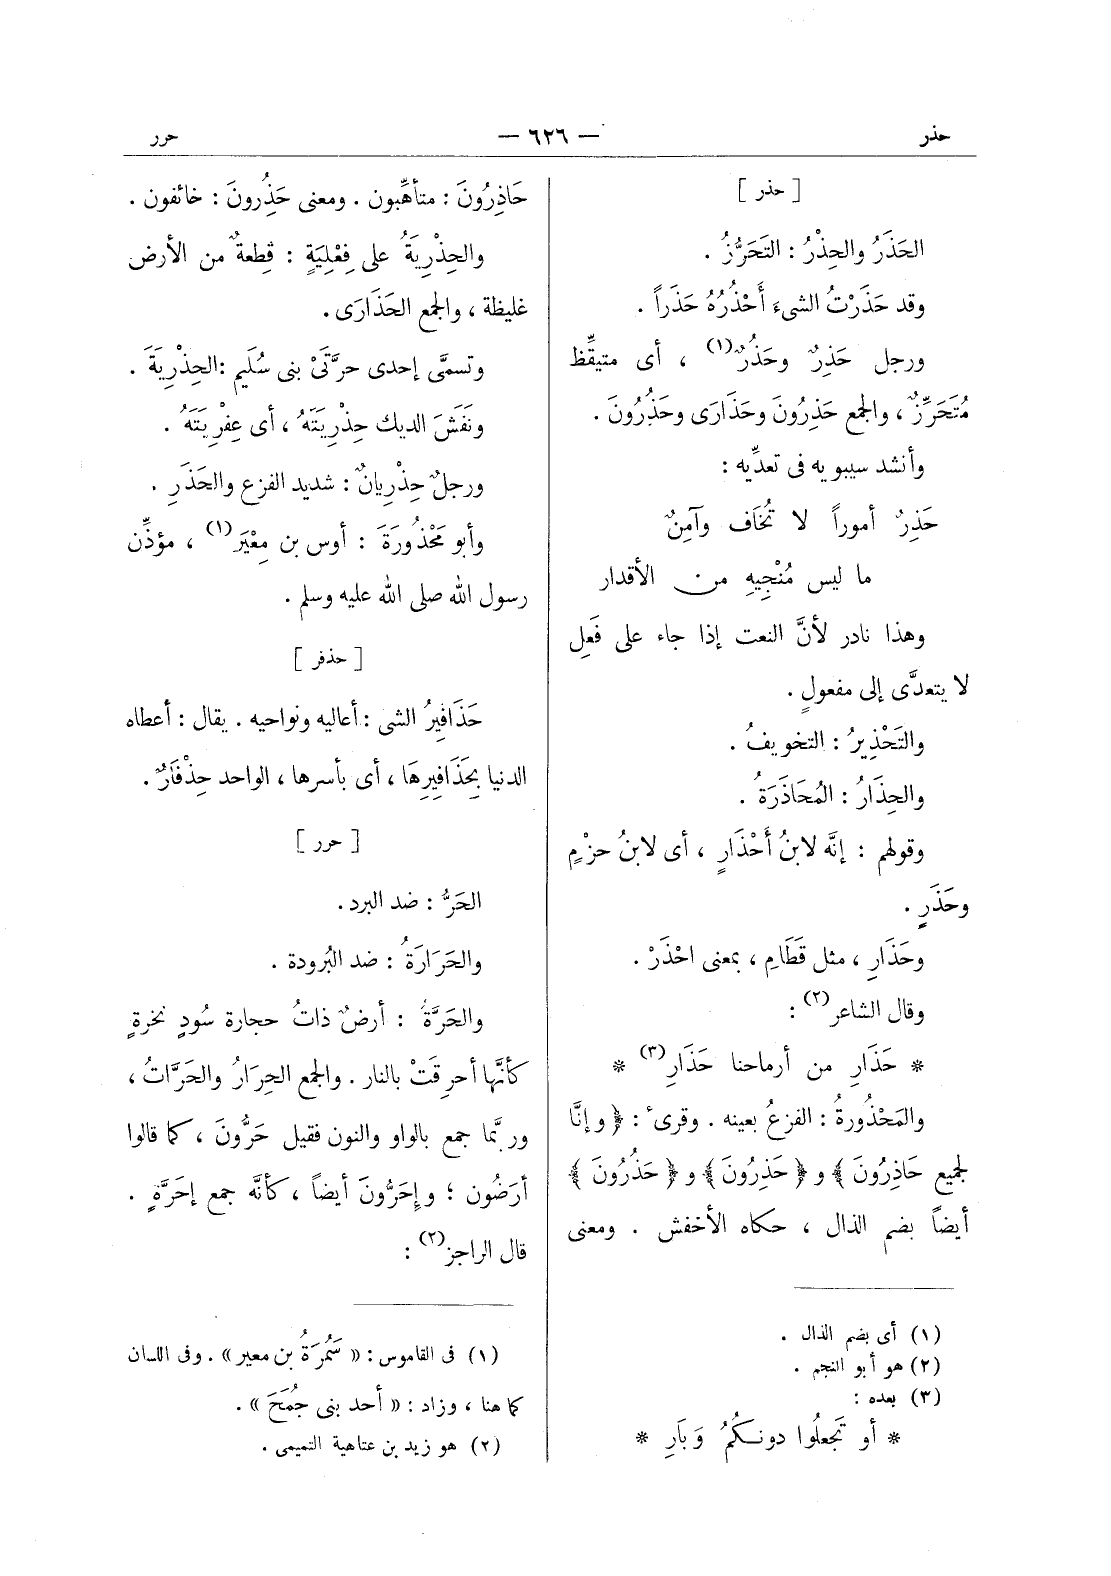 حذر — ٦٢٦ — حرر
[ حذر ]
الحَذَرُ والحِذْرُ : التَحَرُّزُ .
وقد حَذَرْتُ الشىءَ أَحْذُرُهُ حَذَراً .
ورجل حَذِرٌ وحَذُرٌ(١) ، أى متيقِّظ
مُتَحَرِّزٌ ، والجمع حَذِرُونَ وحَذَارَى وحَذُرُونَ .
وأنشد سيبويه فى تعدِّيه :
حَذِرٌ أموراً لا تُخَاف وآمِنٌ
ما ليس مُنْجِيهِ من الأقدار
وهذا نادر لأنَّ النعت إذا جاء على فَعِل
لا يتعدَّى إلى مفعولٍ .
والتَحْذِيرُ : التخويفُ .
والحِذَارُ : المُحَاذَرَةُ .
وقولهم : إنَّه لابنُ أَحْذَارٍ ، أى لابنُ حزْمٍ
وحَذَرٍ .
وحَذَارِ ، مثل قَطَامِ ، بمعنى احْذَرْ .
وقال الشاعر(٢) :
* حَذَارِ من أرماحنا حَذَارِ(٣) *
والمَحْذُورةُ : الفزعُ بعينه . وقرىٔ : ﴿ وإنَّا
لجميع حَاذِرُونَ ﴾ و ﴿ حَذِرُونَ ﴾ و ﴿ حَذُرُونَ ﴾
أيضاً بضم الذال ، حكاه الأخفش . ومعنى
(١) أى بضم الذال .
(٢) هو أبو النجم .
(٣) بعده :
* أو تَجعلُوا دونكُمُ وَبَارِ *
حَاذِرُونَ : متأهِّبون . ومعنى حَذِرُونَ : خائفون .
والحِذْرِيَةُ على فِعْلِيَةٍ : قِطعةٌ من الأرض
غليظة ، والجمع الحَذَارَى .
وتسمَّى إحدى حرَّتَىْ بنى سُلَيم : الحِذْرِيَةَ .
ونَفَشَ الديك حِذْرِيَتَهُ ، أى عِفْرِيَتَهُ .
ورجلٌ حِذْرِيانٌ : شديد الفزع والحَذَرِ .
وأبو مَحْذُورَةَ : أوس بن مِعْيَر(١) ، مؤذِّن
رسول الله صلى الله عليه وسلم .
[ حذفر ]
حَذَافِيرُ الشى : أعاليه ونواحيه . يقال : أعطاه
الدنيا بِحَذَافِيرِهَا ، أى بأسرها ، الواحد حِذْفَارٌ .
[ حرر ]
الحَرُّ : ضد البرد .
والحَرَارَةُ : ضد البُرودة .
والحَرَّةُ : أرضٌ ذاتُ حجارة سُودٍ نخرةٍ
كأنَّها أحرِقتْ بالنار . والجمع الحِرَارُ والحَرَّاتُ ،
وربَّما جمع بالواو والنون فقيل حَرُّونَ ، كما قالوا
أرَضُون ؛ وإِحَرُّونَ أيضاً ، كأنَّه جمع إحَرَّةٍ .
قال الراجز(٢) :
(١) فى القاموس : « سَمُرَةُ بن معير » . وفى اللسان
كما هنا ، وزاد : « أحد بنى جُمَحَ » .
(٢) هو زيد بن عتاهية التميمى .